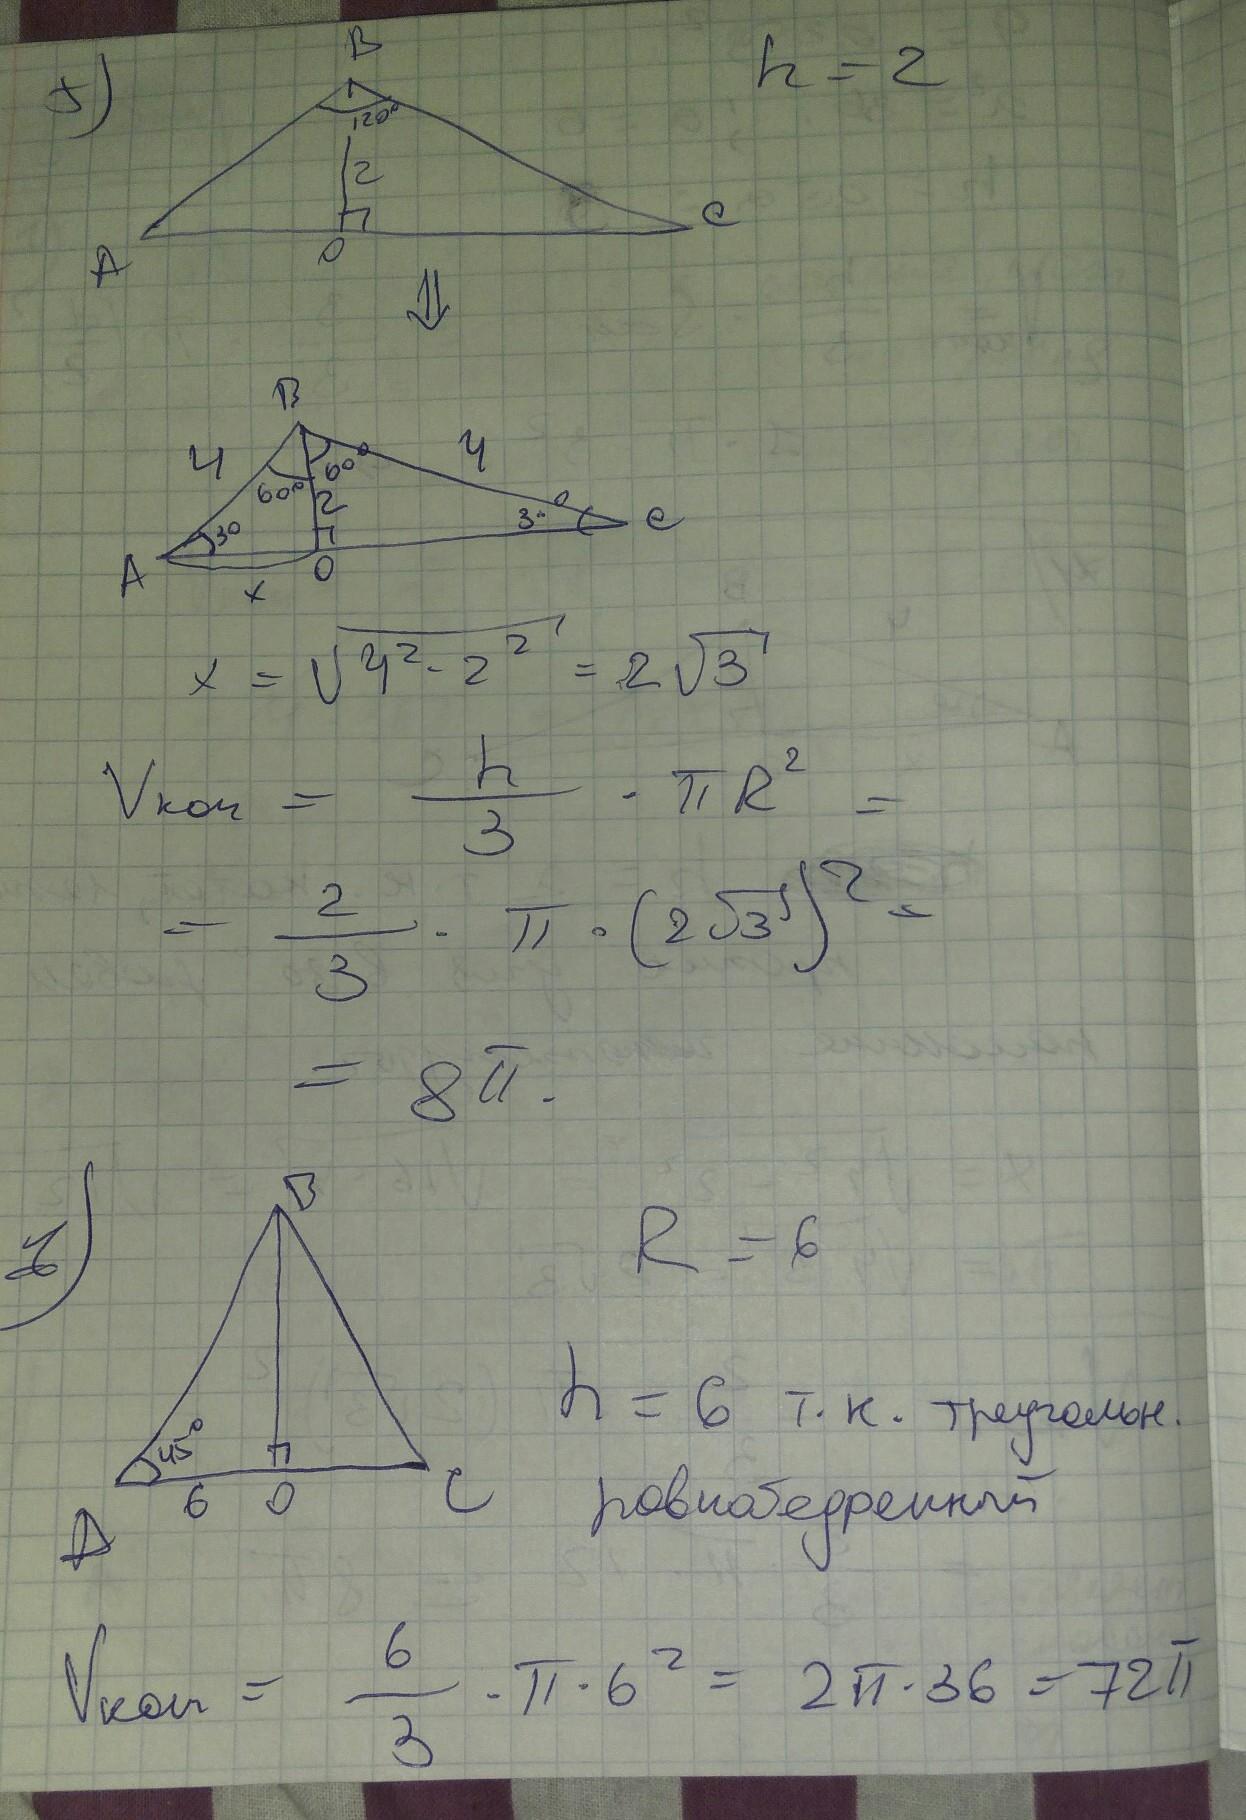 5)
B
h = 2
120°
2
A
O
C
⇓
B
4
60°
60°
4
2
30
3°
A
x
O
C
x = √(4² - 2²) = 2√3
Vкон = h/3 · πR² =
= 2/3 · π · (2√3)² =
= 8π.
B
R = 6
45°
h = 6 т.к. треугольн.
A
6
O
C
равнобедренный
Vкон = 6/3 · π · 6² = 2π · 36 = 72π